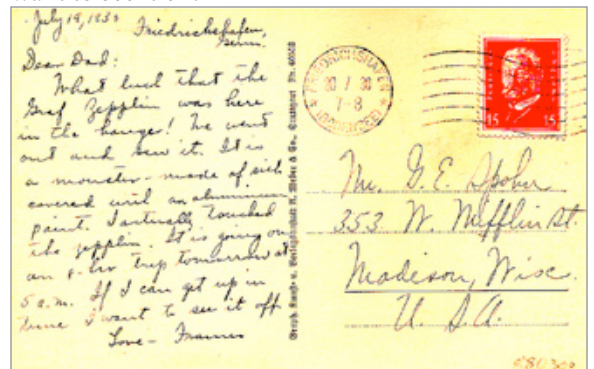 July 19, 1930
Friedrichshafen,
Germ.
Dear Dad:
What luck that the
Graf Zepplin was here
in the hanger! We went
out and saw it. It is
a monster - made of silk
covered with an aluminum
paint. I actually touched
the zepplin. It is going on
an 8-hr trip tomorrow at
5 a.m. If I can get up in
time I want to see it off
Love - Frances
FRIEDRICHSHAFEN
20 7 30
7-8
(BODENSEE)
15 15
Mr. G. E.
353 W. Mifflin St.
Madison, Wisc.
U. S. A.